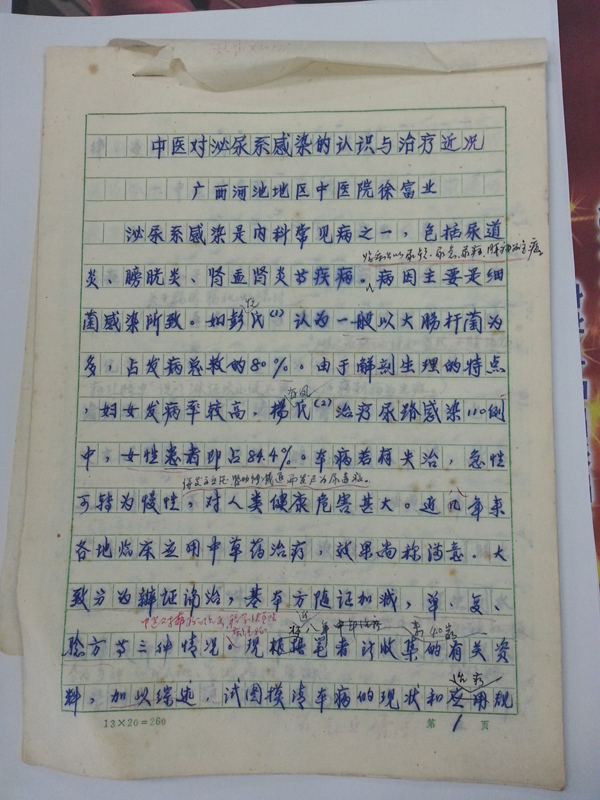 中医对泌尿系感染的认识与治疗近况
广西河池地区中医院徐富业
泌尿系感染是内科常见病之一，包括尿道
炎、膀胱炎、肾盂肾炎等疾病。病因主要是细
菌感染所致。如彭氏(1)认为一般以大肠杆菌为
多，占发病系数的80%。由于解剖生理的特点
，妇女发病率较高。杨氏(2)治疗尿路感染110例
中，女性患者即占84.4%。本病若有失治，急性
可转为慢性，对人类健康危害甚大。近八年来
各地临床应用中草药治疗，效果尚称满意。大
致分为辩证论治，基本方随证加减，单、复、
验方等三种情况。现根据笔者计收集的有关资
料，加以综述，试图摸清本病的现状和治疗应用规
13×20=260
第1页